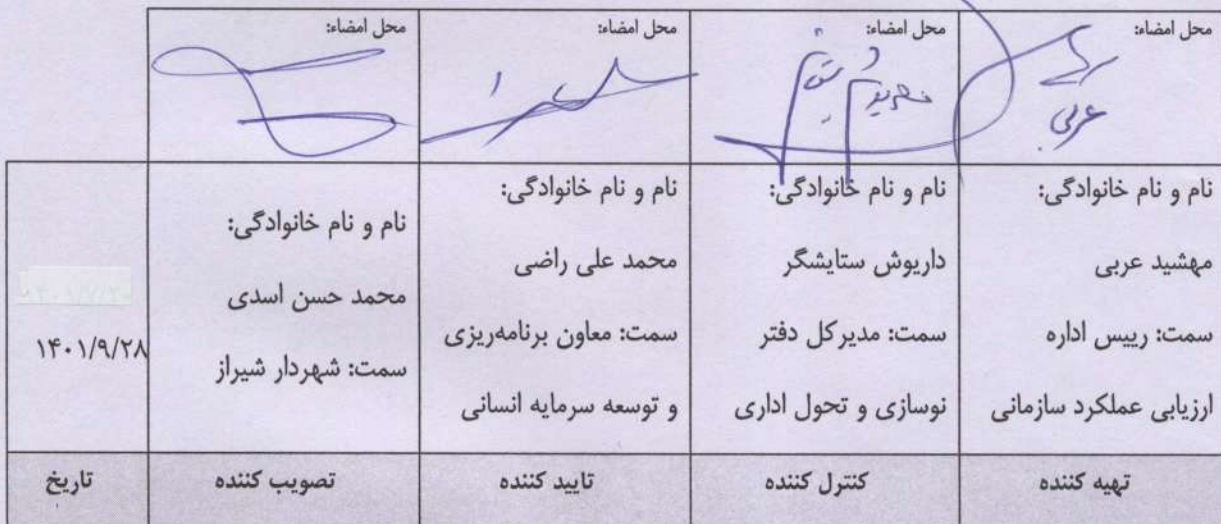 محل امضاء:
محل امضاء:
محل امضاء:
محل امضاء:
عربی
نام و نام خانوادگی:
مهشید عربی
سمت: رییس اداره
ارزیابی عملکرد سازمانی
نام و نام خانوادگی:
داریوش ستایشگر
سمت: مدیرکل دفتر
نوسازی و تحول اداری
نام و نام خانوادگی:
محمد علی راضی
سمت: معاون برنامه‌ریزی
و توسعه سرمایه انسانی
نام و نام خانوادگی:
محمد حسن اسدی
سمت: شهردار شیراز
۱۴۰۱/۹/۲۸
تهیه کننده
کنترل کننده
تایید کننده
تصویب کننده
تاریخ